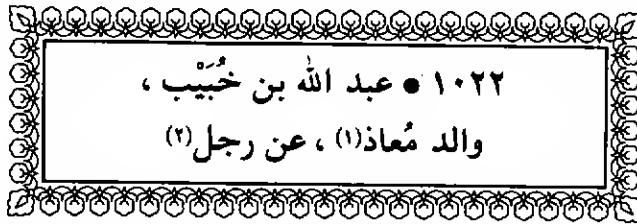 ١٠٢٢ • عبد الله بن خُبَيْب ،
والد مُعاذ(١) ، عن رجل(٢)